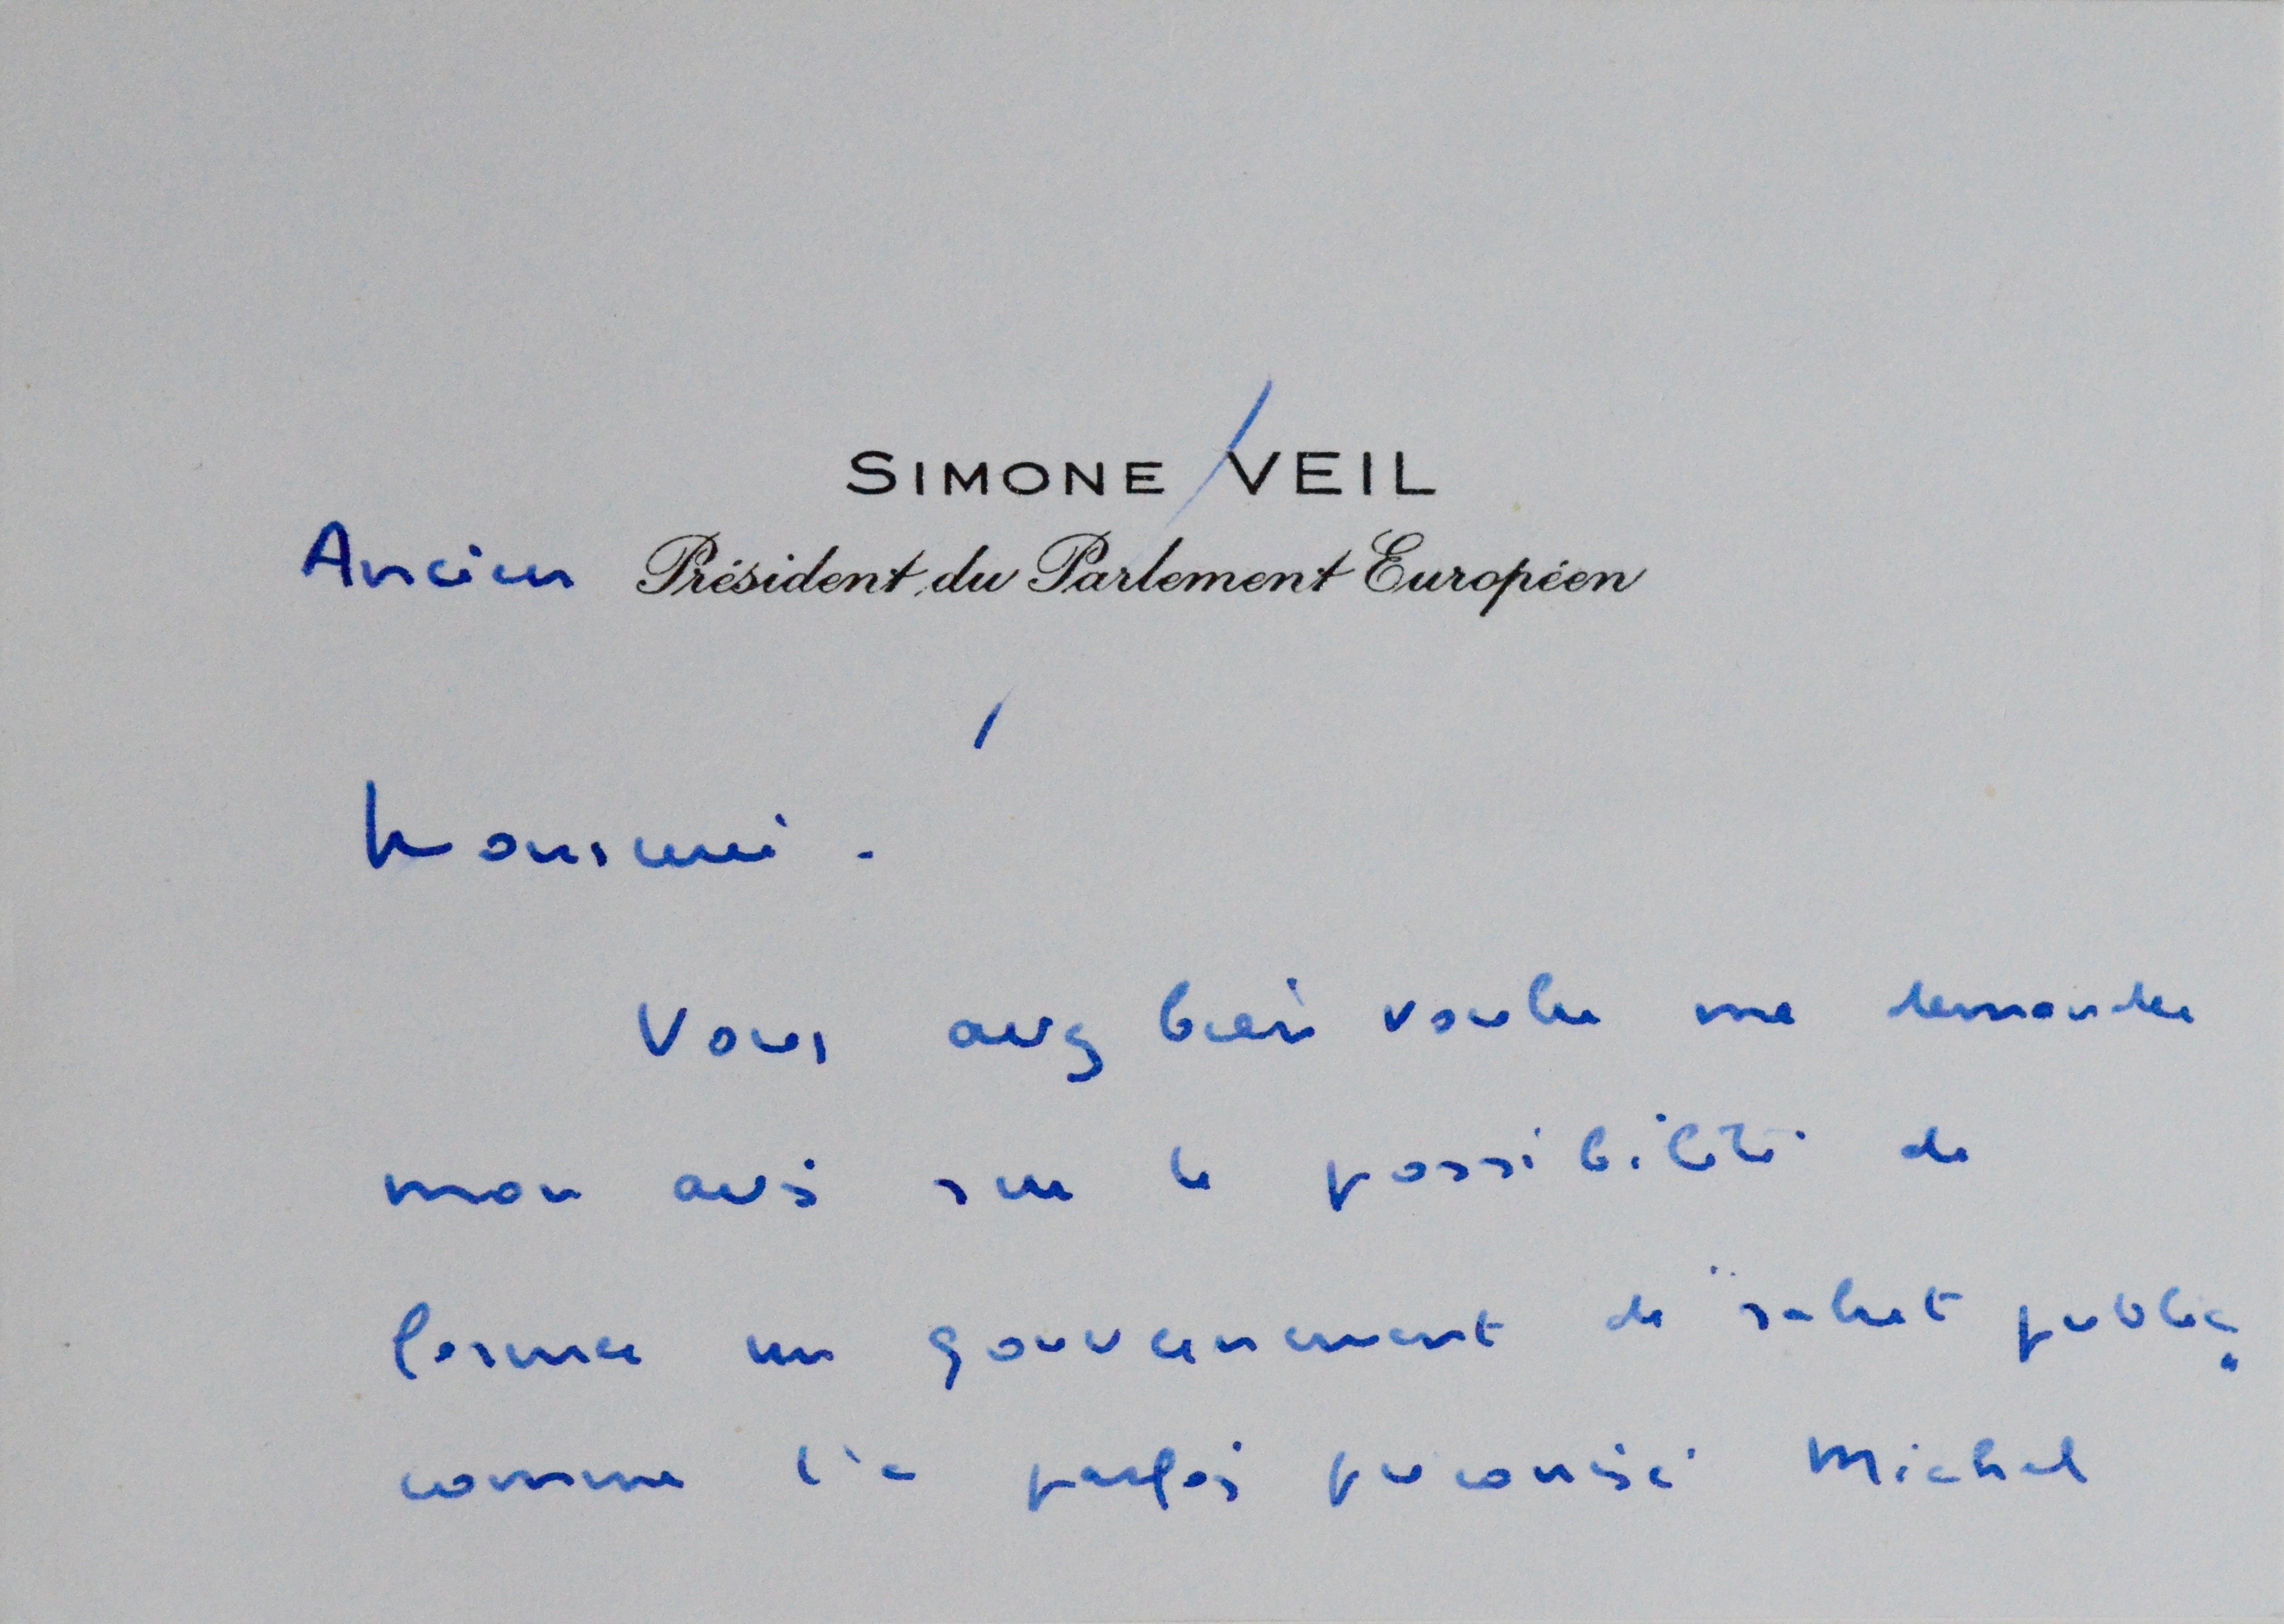 SIMONE VEIL
Ancien Président du Parlement Européen
Monsieur.
Vous avez bien voulu me demander
mon avis sur la possibilité de
former un gouvernement de "salut public"
comme l'a parfois préconisé Michel